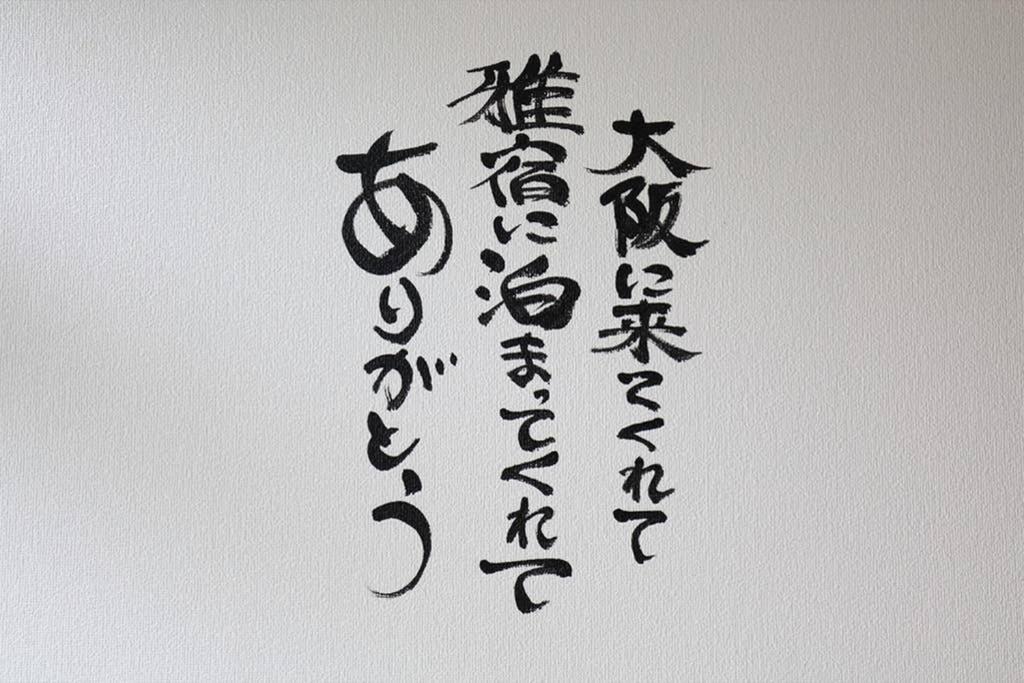 大阪に来てくれて
雅宿に泊まってくれて
ありがとう